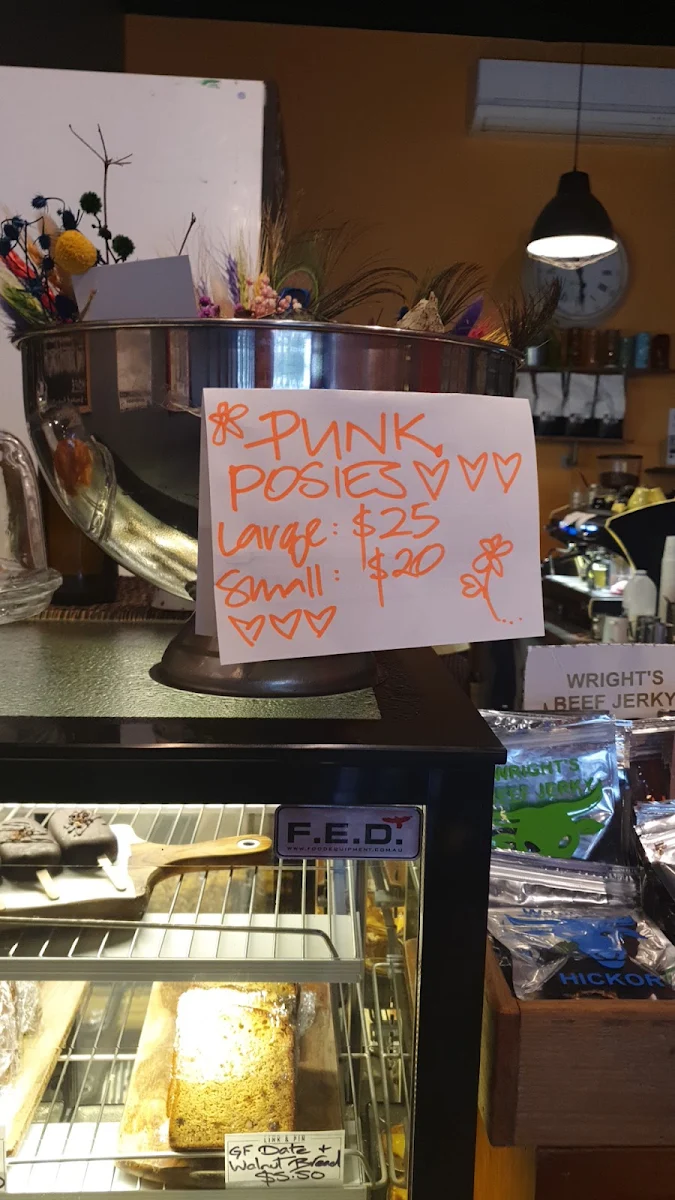 PUNK
POSIES
Large: $25
Small: $20
WRIGHT'S
BEEF JERKY
WRIGHT'S
BEEF JERKY
HICKOR
F.E.D.
WWW.FOODEQUIPMENT.COM.AU
LINK & PIN
GF Date +
Walnut Bread
$5.50